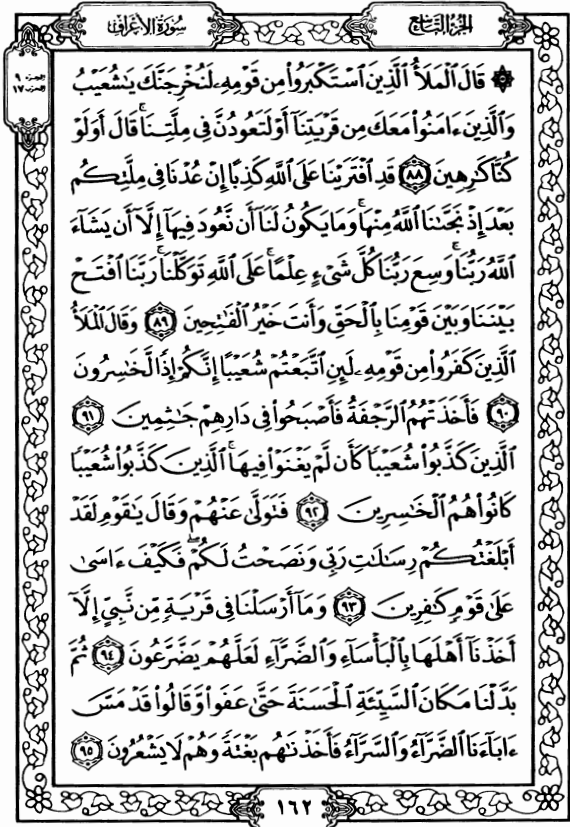 سُورَةُ الأَعْرَافِ
الجُزْءُ التَّاسِعُ
الحزب ١٧
۞ قَالَ ٱلْمَلَأُ ٱلَّذِينَ ٱسْتَكْبَرُوا۟ مِن قَوْمِهِۦ لَنُخْرِجَنَّكَ يَـٰشُعَيْبُ
وَٱلَّذِينَ ءَامَنُوا۟ مَعَكَ مِن قَرْيَتِنَآ أَوْ لَتَعُودُنَّ فِى مِلَّتِنَا ۚ قَالَ أَوَلَوْ
كُنَّا كَـٰرِهِينَ ٨٨ قَدِ ٱفْتَرَيْنَا عَلَى ٱللَّهِ كَذِبًا إِنْ عُدْنَا فِى مِلَّتِكُم
بَعْدَ إِذْ نَجَّىٰنَا ٱللَّهُ مِنْهَا ۚ وَمَا يَكُونُ لَنَآ أَن نَّعُودَ فِيهَآ إِلَّآ أَن يَشَآءَ
ٱللَّهُ رَبُّنَا ۚ وَسِعَ رَبُّنَا كُلَّ شَىْءٍ عِلْمًا ۚ عَلَى ٱللَّهِ تَوَكَّلْنَا ۚ رَبَّنَا ٱفْتَحْ
بَيْنَنَا وَبَيْنَ قَوْمِنَا بِٱلْحَقِّ وَأَنتَ خَيْرُ ٱلْفَـٰتِحِينَ ٨٩ وَقَالَ ٱلْمَلَأُ
ٱلَّذِينَ كَفَرُوا۟ مِن قَوْمِهِۦ لَئِنِ ٱتَّبَعْتُمْ شُعَيْبًا إِنَّكُمْ إِذًا لَّخَـٰسِرُونَ
٩٠ فَأَخَذَتْهُمُ ٱلرَّجْفَةُ فَأَصْبَحُوا۟ فِى دَارِهِمْ جَـٰثِمِينَ ٩١
ٱلَّذِينَ كَذَّبُوا۟ شُعَيْبًا كَأَن لَّمْ يَغْنَوْا۟ فِيهَا ۚ ٱلَّذِينَ كَذَّبُوا۟ شُعَيْبًا
كَانُوا۟ هُمُ ٱلْخَـٰسِرِينَ ٩٢ فَتَوَلَّىٰ عَنْهُمْ وَقَالَ يَـٰقَوْمِ لَقَدْ
أَبْلَغْتُكُمْ رِسَـٰلَـٰتِ رَبِّى وَنَصَحْتُ لَكُمْ ۖ فَكَيْفَ ءَاسَىٰ
عَلَىٰ قَوْمٍ كَـٰفِرِينَ ٩٣ وَمَآ أَرْسَلْنَا فِى قَرْيَةٍ مِّن نَّبِىٍّ إِلَّآ
أَخَذْنَآ أَهْلَهَا بِٱلْبَأْسَآءِ وَٱلضَّرَّآءِ لَعَلَّهُمْ يَضَّرَّعُونَ ٩٤ ثُمَّ
بَدَّلْنَا مَكَانَ ٱلسَّيِّئَةِ ٱلْحَسَنَةَ حَتَّىٰ عَفَوا۟ وَّقَالُوا۟ قَدْ مَسَّ
ءَابَآءَنَا ٱلضَّرَّآءُ وَٱلسَّرَّآءُ فَأَخَذْنَـٰهُم بَغْتَةً وَهُمْ لَا يَشْعُرُونَ ٩٥
١٦٢